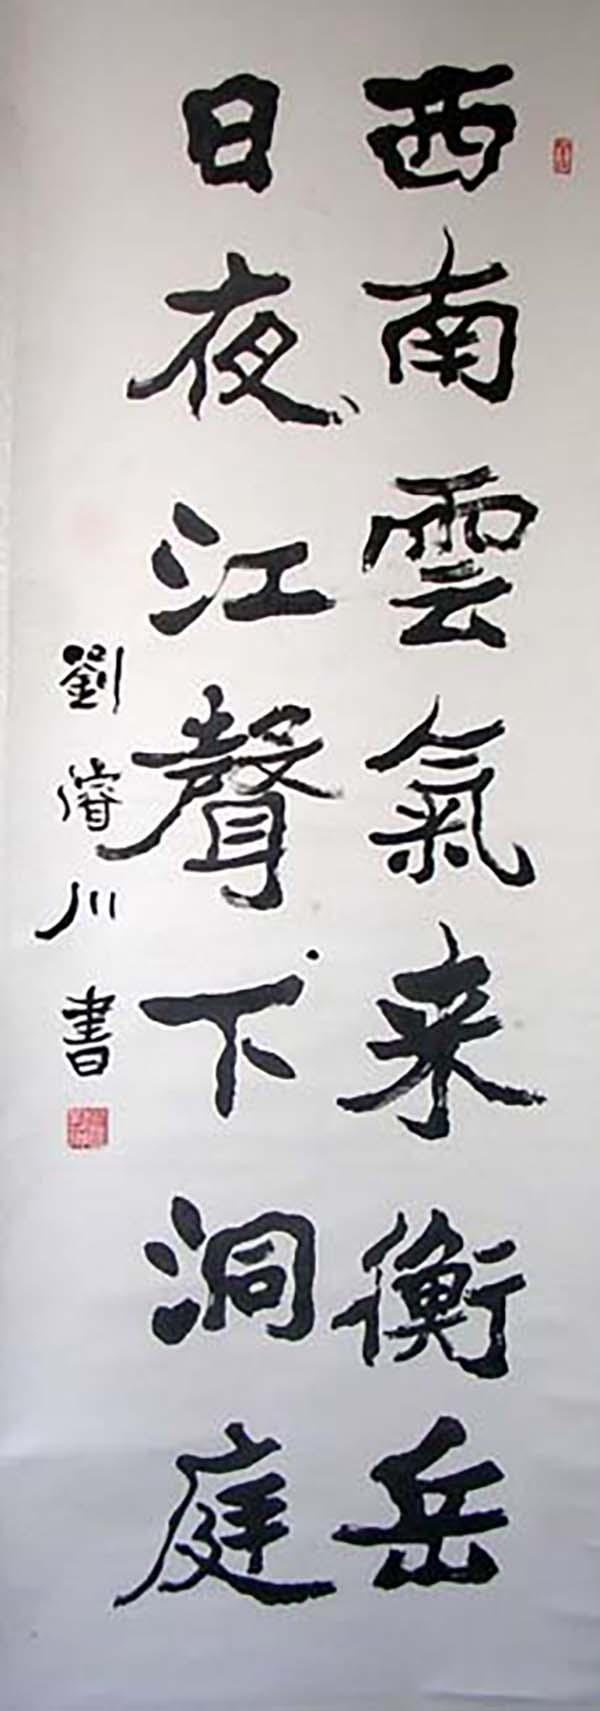 西南雲氣来衡岳
日夜江聲下洞庭
劉濬川書